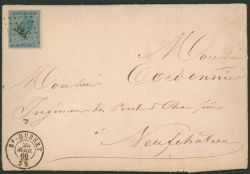 Monsieur
Monsieur Cordonnier
Ingénieur des Ponts & Chaussées
à
Neufchâteau
ST-HUBERT